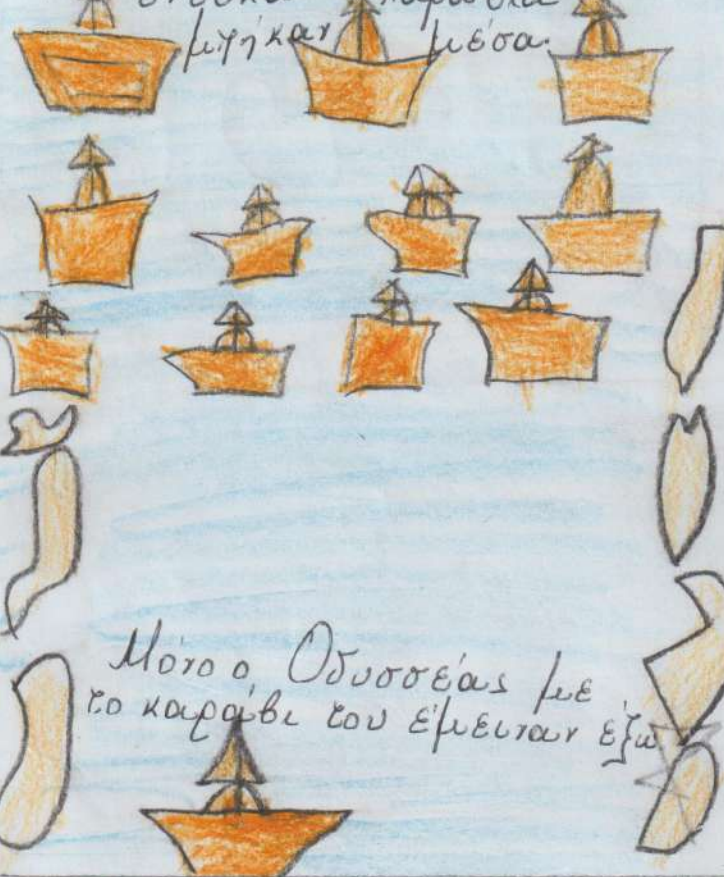 μπήκαν μέσα.
Μόνο ο Οδυσσέας με
το καράβι του έμειναν έξω